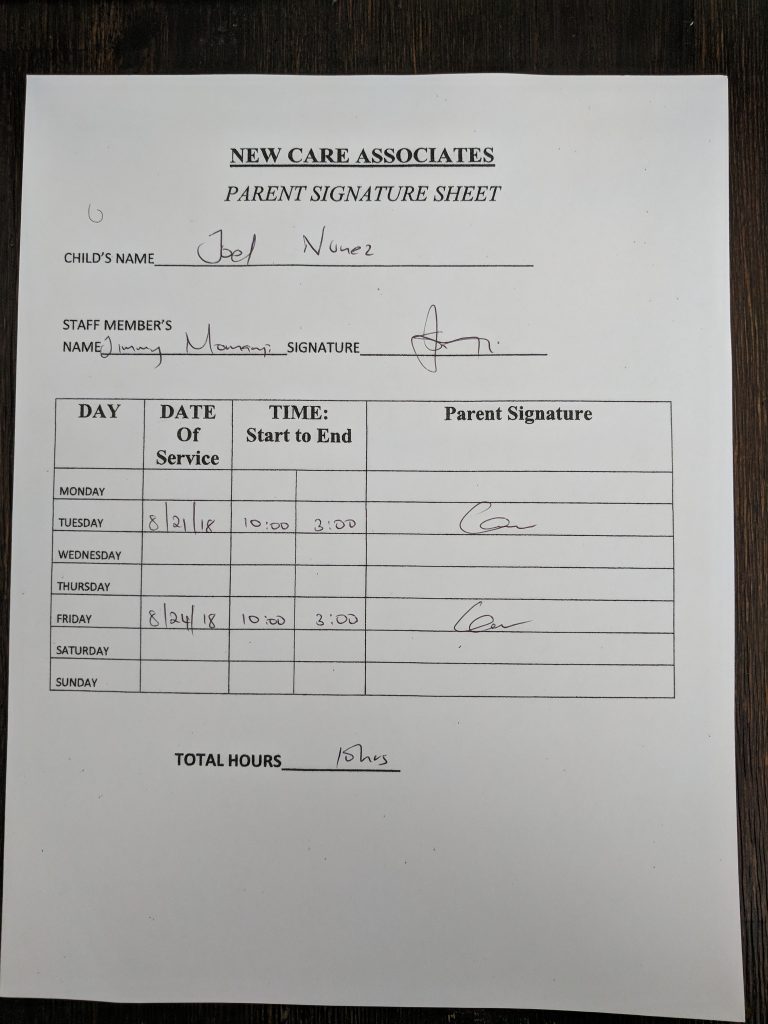 NEW CARE ASSOCIATES
PARENT SIGNATURE SHEET
CHILD'S NAME Joel Nunez
STAFF MEMBER'S
NAME Jimmy SIGNATURE
DAY DATE Of Service TIME: Start to End Parent Signature
MONDAY
TUESDAY 8/21/18 10:00 3:00
WEDNESDAY
THURSDAY
FRIDAY 8/24/18 10:00 3:00
SATURDAY
SUNDAY
TOTAL HOURS 10hrs